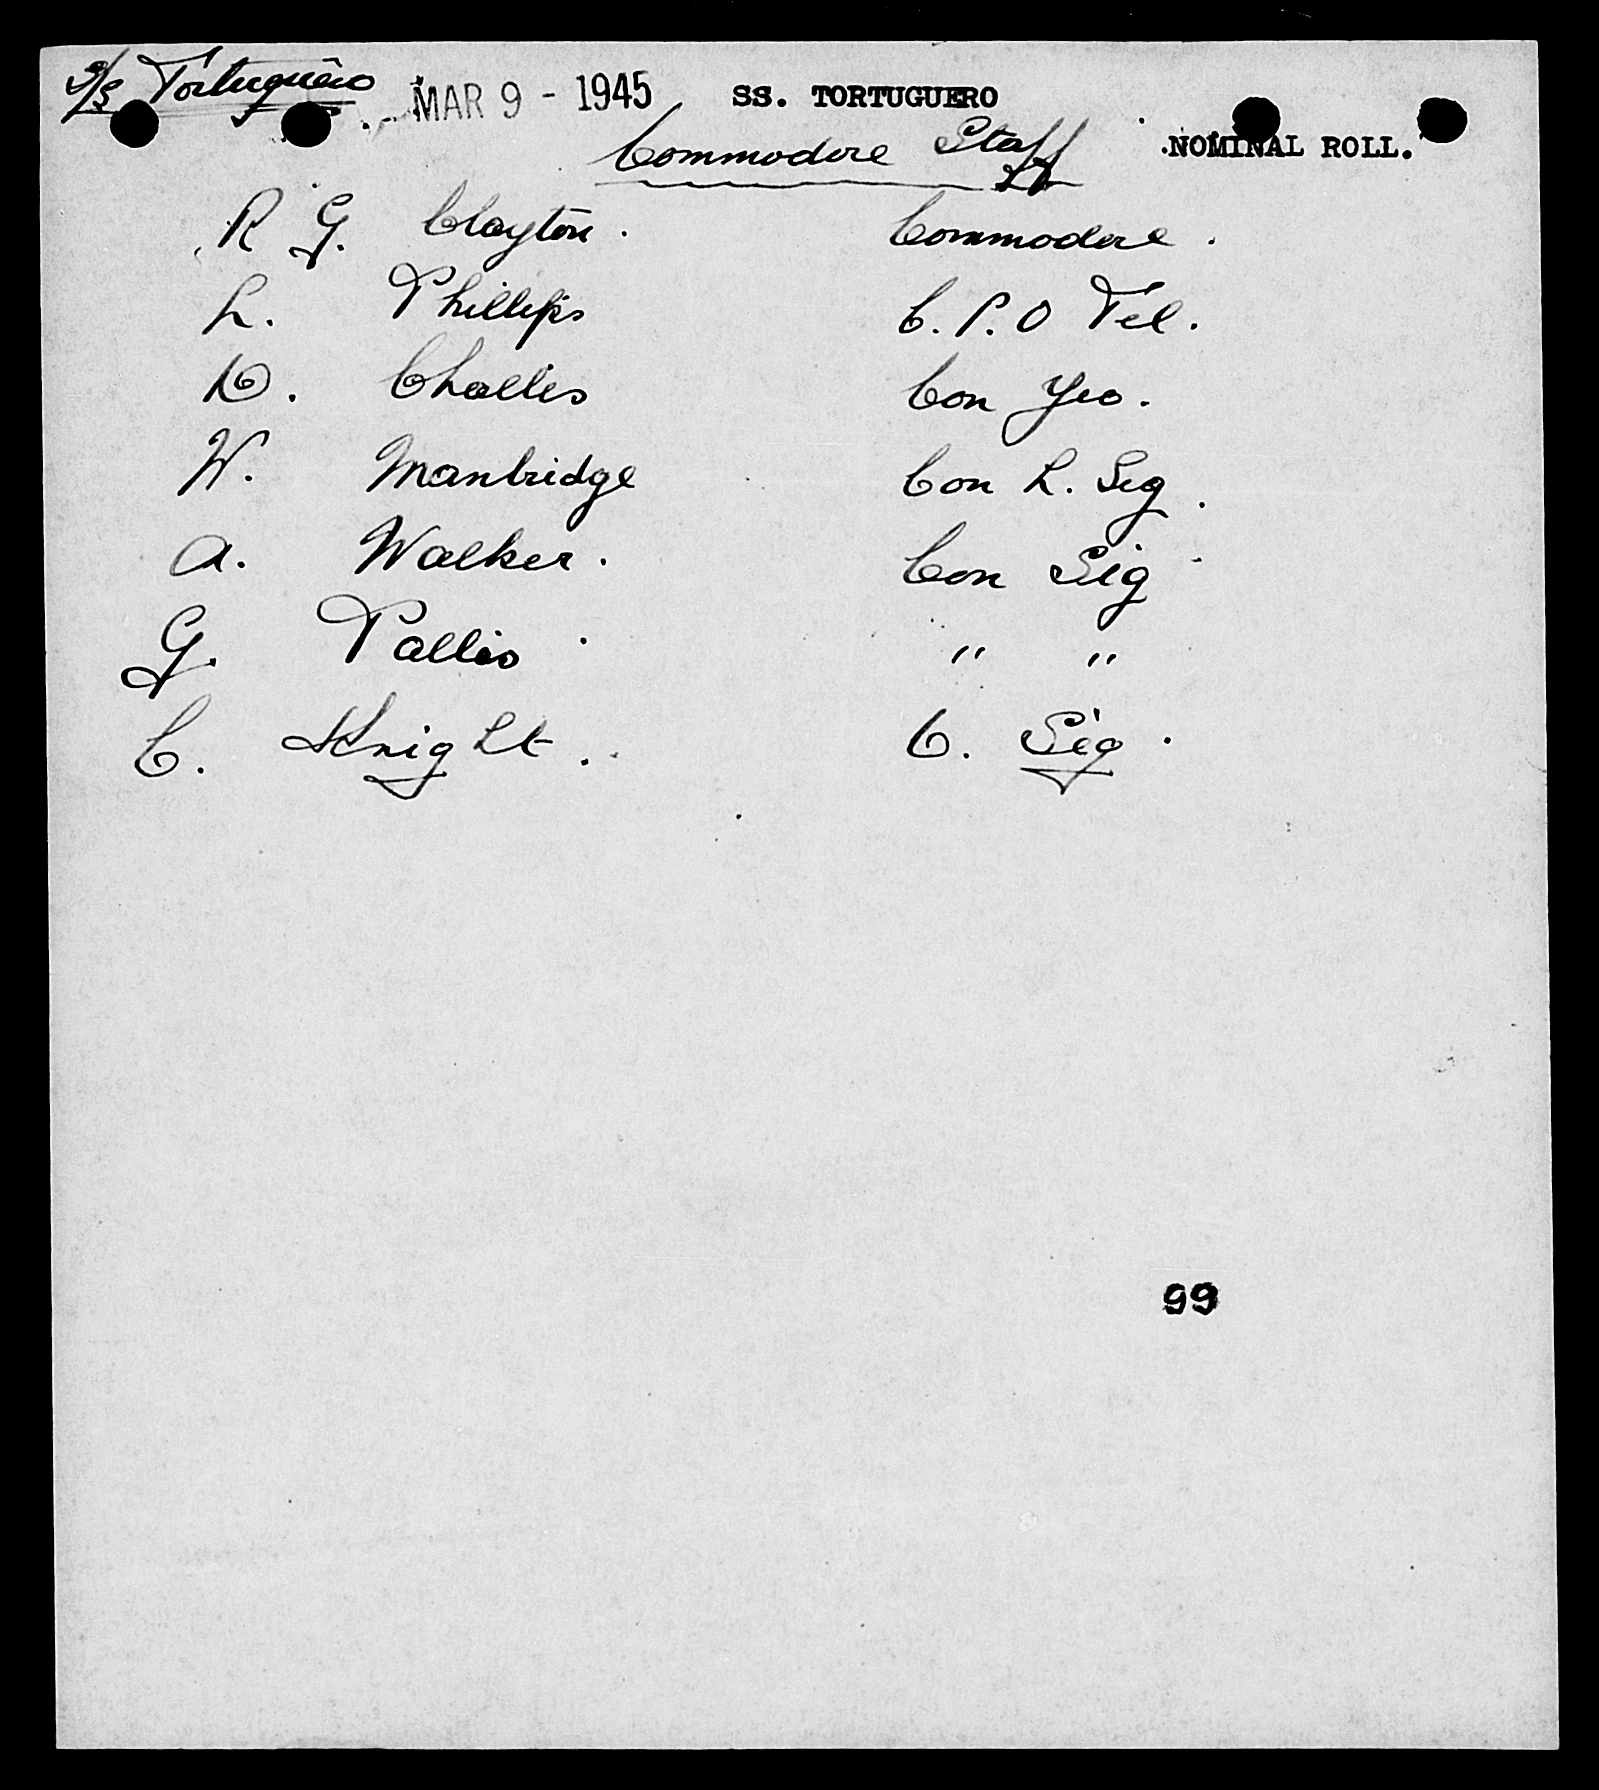 S/S Tortuguero MAR 9 - 1945 SS. TORTUGUERO
Commodore Staff NOMINAL ROLL.
R G. Clayton. Commodore.
L. Phillips C. P. O Tel.
D. Challis Con Yeo.
W. Manbridge Con L. Sig.
A. Walker. Con Sig
G. Pallis " "
C. Knight. C. Sig.
99